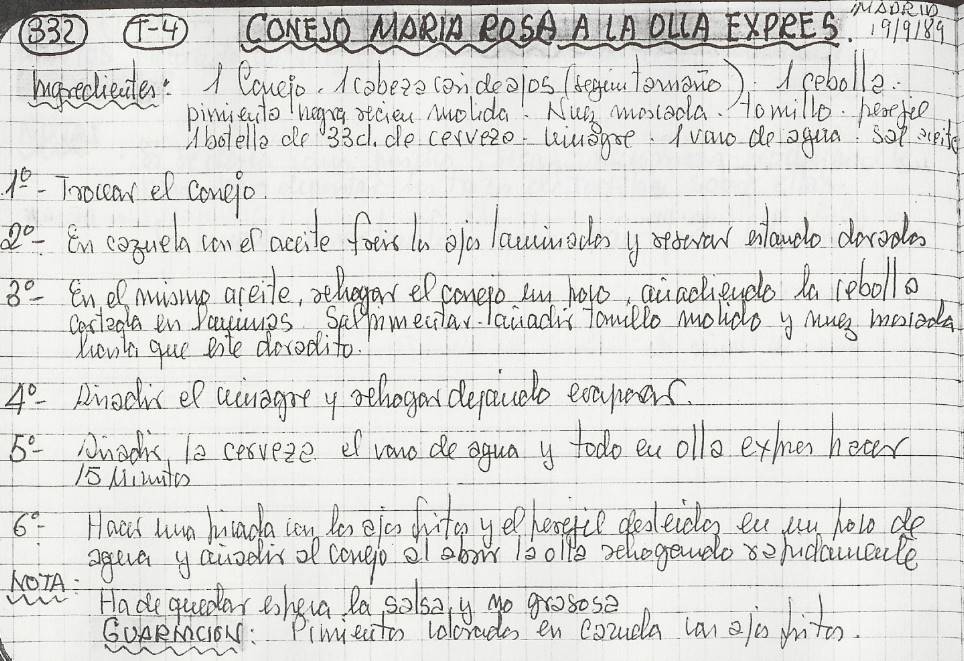 332 T-4 CONEJO MARIA ROSA A LA OLLA EXPRES. MADRID 19/9/89
Ingredientes: 1 Conejo. 1 cabeza de ajos (según tamaño). 1 cebolla.
pimienta negra recien molida. Nuez moscada. tomillo. perejil
1 botella de 33cl. de cerveza. vinagre. 1 vaso de agua. Sal aceite
1º- Trocear el conejo.
2º- En cazuela con el aceite freir los ajos laminados y reservar estando dorados
3º- En el mismo aceite, rehogar el conejo un poco, añadiendo la cebolla
cortada en láminas. Salpimentar. añadir tomillo molido y nuez moscada
hasta que este doradito.
4º- Añadir el vinagre y rehogar dejando evaporar.
5º- Añadir la cerveza el vaso de agua y todo en olla expres hacer
15 Minutos
6º- Hacer una picada con los ajos fritos y el perejil desleidos en un poco de
agua y añadir al conejo al abrir la olla rehogando rapidamente
NOTA:
Ha de quedar espesa la salsa, y no grasosa
GUARNICION: Pimientos colorados en cazuela con ajos fritos.